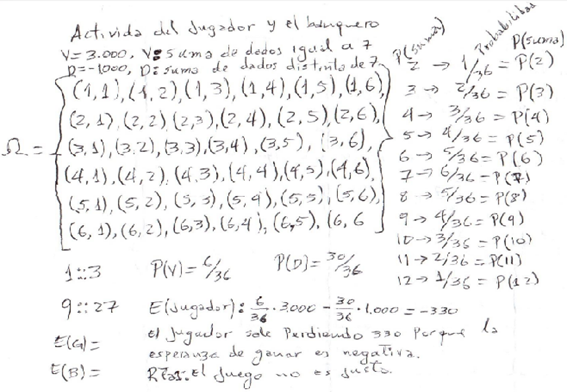 Actividad del Jugador y el banquero
V=3.000, V: suma de dados igual a 7
D=-1000, D: suma de dados distinto de 7
Ω = {(1,1), (1,2), (1,3), (1,4), (1,5), (1,6),
(2,1), (2,2) (2,3), (2,4), (2,5) (2,6),
(3,1), (3,2), (3,3), (3,4), (3,5), (3,6),
(4,1), (4,2), (4,3), (4,4), (4,5), (4,6),
(5,1), (5,2), (5,3), (5,4), (5,5), (5,6),
(6,1), (6,2), (6,3), (6,4), (6,5), (6,6}
P(suma) Probabilidad P(suma)
2 → 1/36 = P(2)
3 → 2/36 = P(3)
4 → 3/36 = P(4)
5 → 4/36 = P(5)
6 → 5/36 = P(6)
7 → 6/36 = P(7)
8 → 5/36 = P(8)
9 → 4/36 = P(9)
10 → 3/36 = P(10)
11 → 2/36 = P(11)
12 → 1/36 = P(12)
1::3 P(V) = 6/36 P(D) = 30/36
9::27 E(Jugador): 6/36 · 3.000 - 30/36 · 1.000 = -330
E(G)= el Jugador sale Perdiendo 330 Porque la
esperanza de ganar es negativa.
E(B)= Rta: El Juego no es justo.